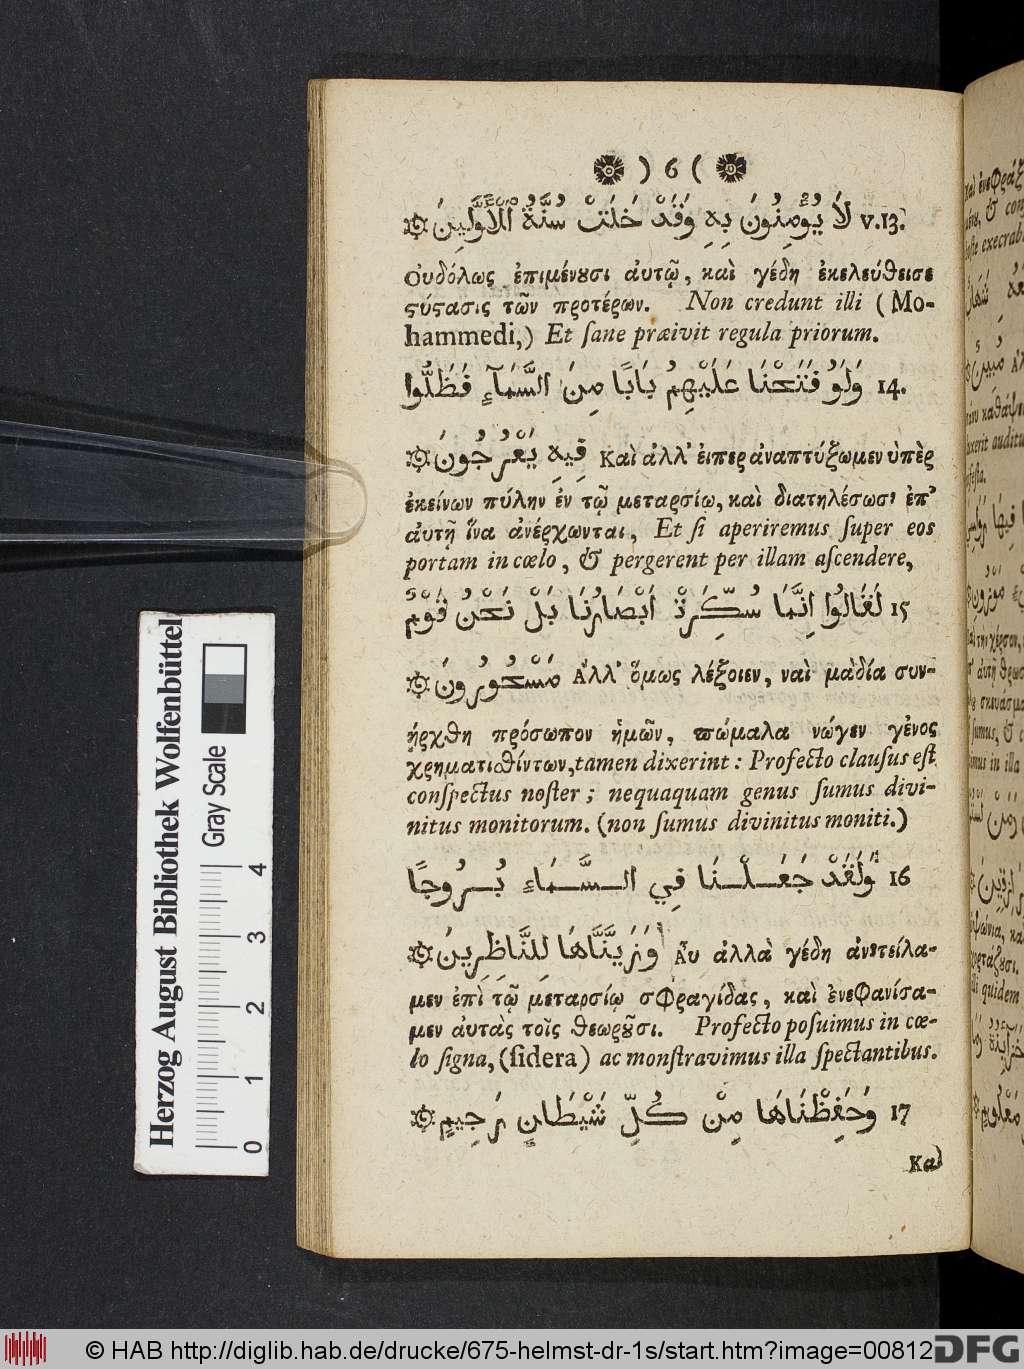 ) 6 (
لَا يُؤْمِنُونَ بِهِ وَقَدْ خَلَتْ سُنَّةُ ٱلْأَوَّلِينَ v.13.
Ουδόλως ἐπιμένȣσι ἀυτῷ, καὶ γέδη ἐκελεύθεισε
ςύςασις τῶν προτέρων. Non credunt illi (Mo-
hammedi,) Et ſane præivit regula priorum.
وَلَوْ فَتَحْنَا عَلَيْهِمْ بَابًا مِنَ السَّمَآءِ فَظَلُّوا 14.
فِيهِ يَعْرُجُونَ Καὶ ἀλλ' ἐιπες ἀναπτύξωμεν ὑπὲρ
ἐκείνων πύλην ἐν τῷ μεταρσίῳ, καὶ διατηλέσωσι ἐπ'
ἀυτῇ ἵνα ἀνέρχωνται, Et ſi aperiremus ſuper eos
portam in cœlo, & pergerent per illam aſcendere,
لَقَالُوا اِنَّمَا سُكِّرَتْ اَبْصَارُنَا بَلْ نَحْنُ قَوْمٌ 15
مَسْحُورُونَ Ἀλλ' ὅμως λέξοιεν, ναὶ μὰδία συν-
ήρχθη πρόσωπον ἡμῶν, πώμαλα νώγεν γένος
χρηματιθίντων, tamen dixerint: Profecto clauſus eſt
conſpectus noſter; nequaquam genus ſumus divi-
nitus monitorum. (non ſumus divinitus moniti.)
وَلَقَدْ جَعَلْنَا فِي السَّمَاءِ بُرُوجًا 16
وَزَيَّنَّاهَا لِلنَّاظِرِينَ Ἀυ ἀλλὰ γέδη ἀνετείλα-
μεν ἐπὶ τῷ μεταρσίῳ σφραγίδας, καὶ ἐνεφανίσα-
μεν ἀυτὰς τοῖς θεωρȣ͂σι. Profecto poſuimus in cœ-
lo ſigna, (ſidera) ac monſtravimus illa ſpectantibus.
وَحَفِظْنَاهَا مِنْ كُلِّ شَيْطَانٍ رَجِيمٍ 17
Καὶ
Herzog August Bibliothek Wolfenbüttel
Gray Scale
0 1 2 3 4
© HAB http://diglib.hab.de/drucke/675-helmst-dr-1s/start.htm?image=00812
DFG